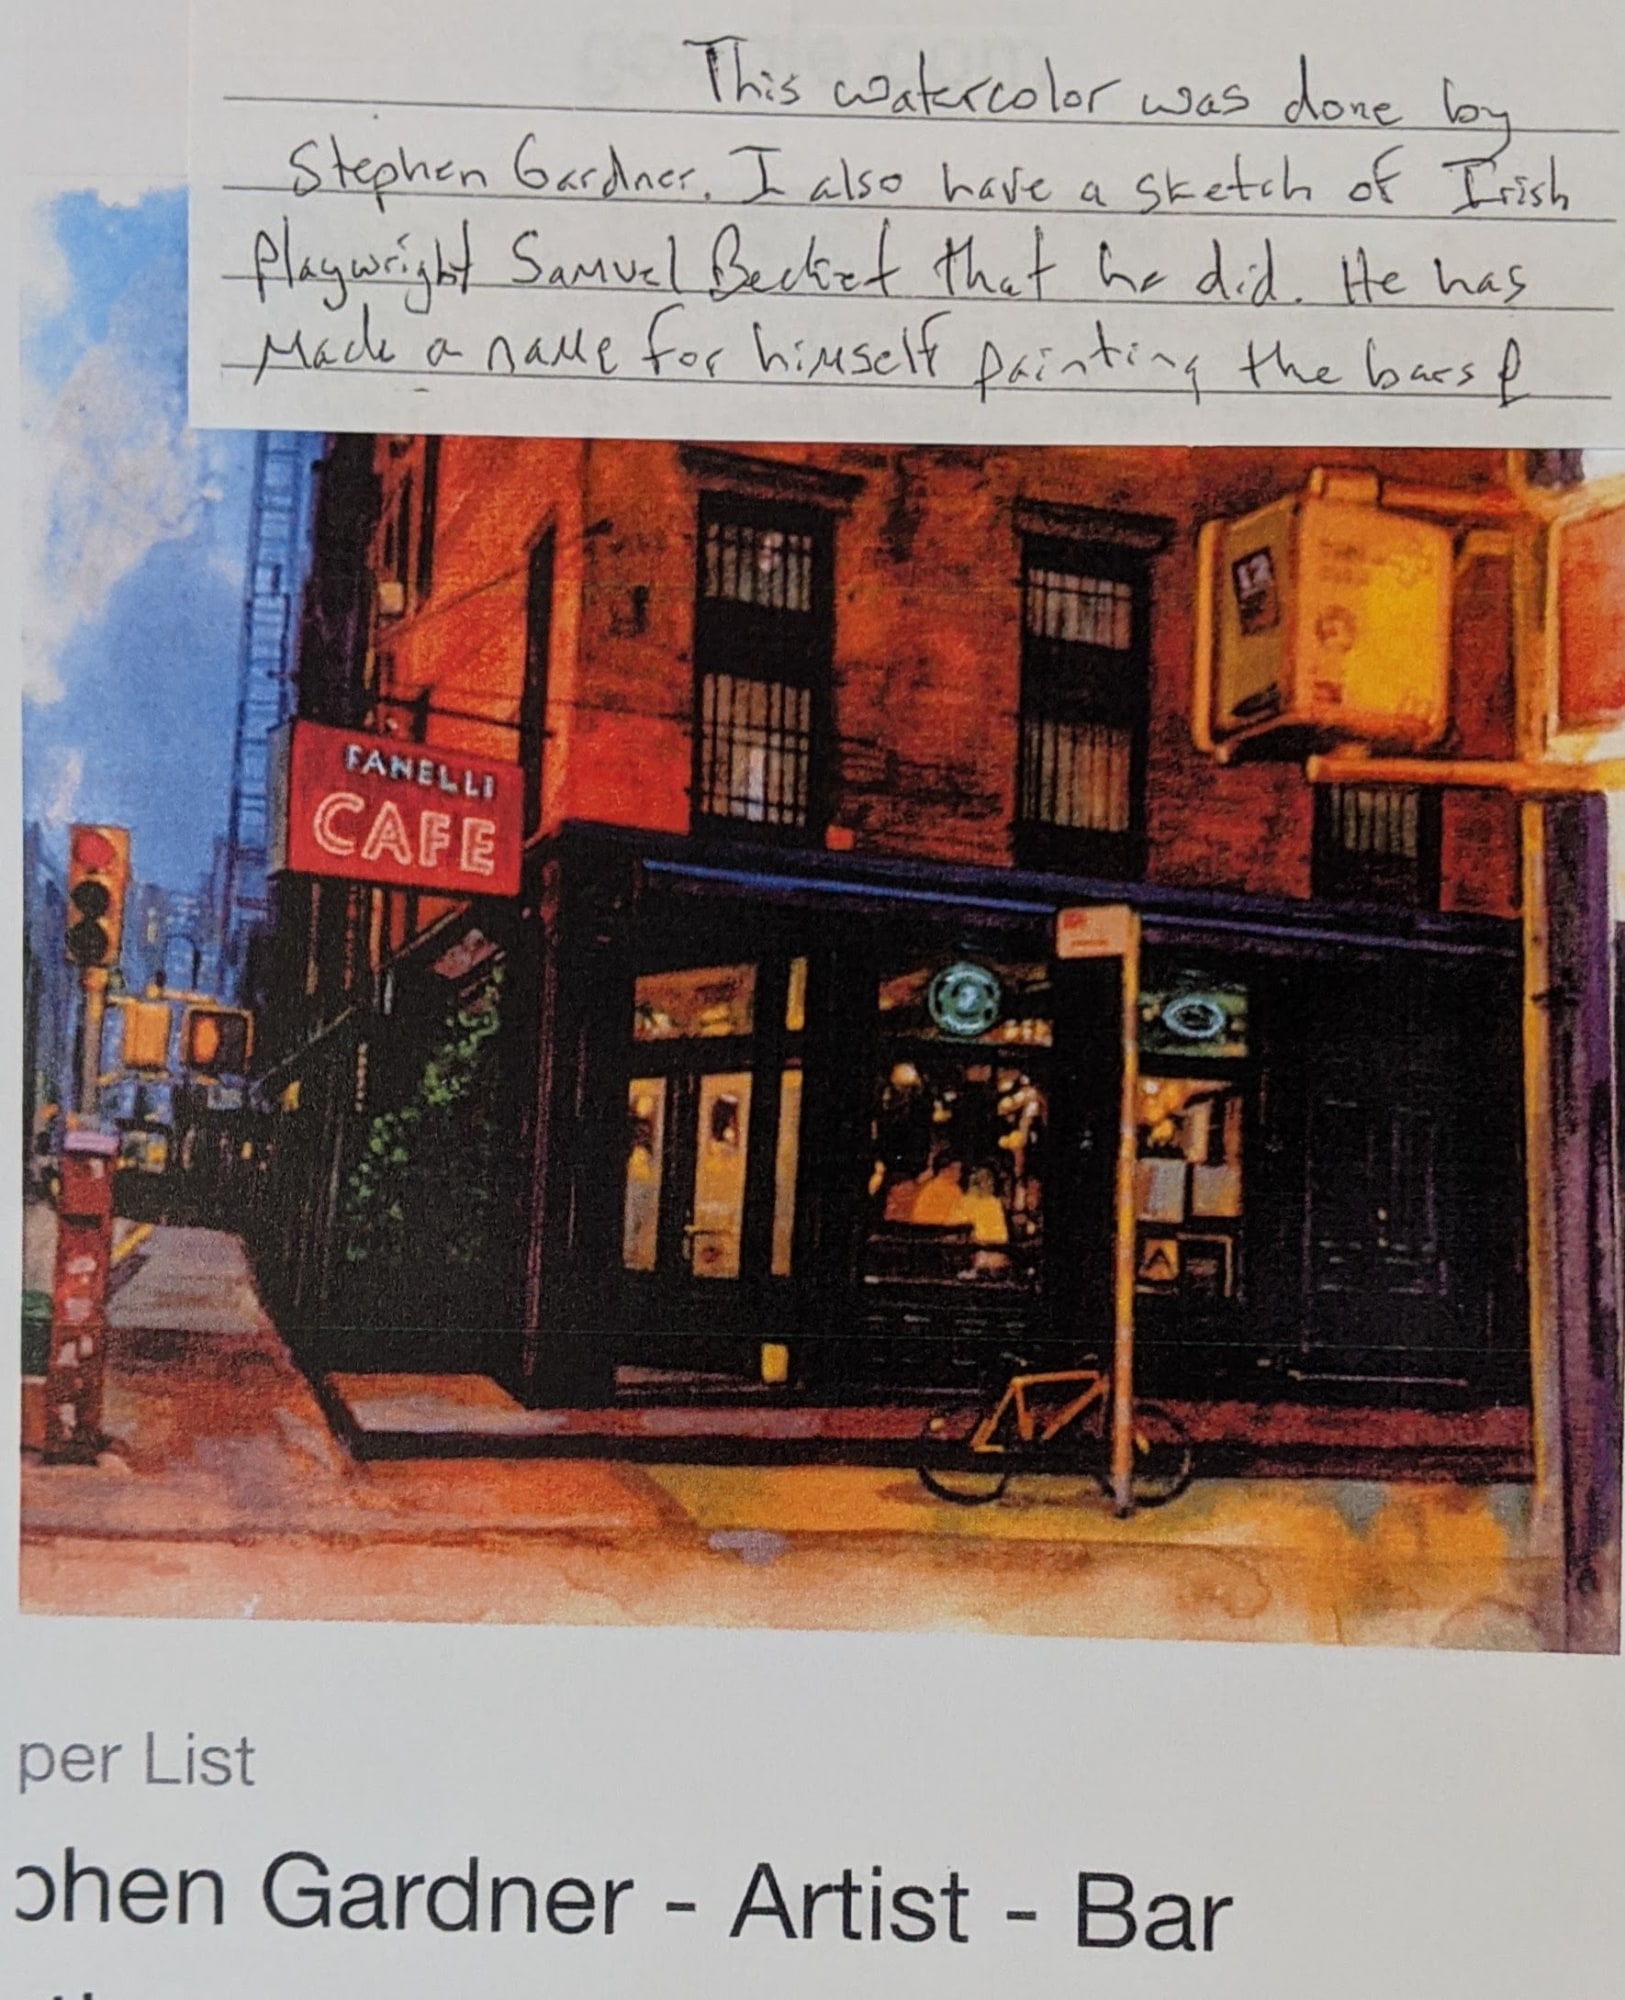 This watercolor was done by
Stephen Gardner. I also have a sketch of Irish
playwright Samuel Becket that he did. He has
made a name for himself painting the bars &
FANELLI
CAFE
A
per List
phen Gardner - Artist - Bar